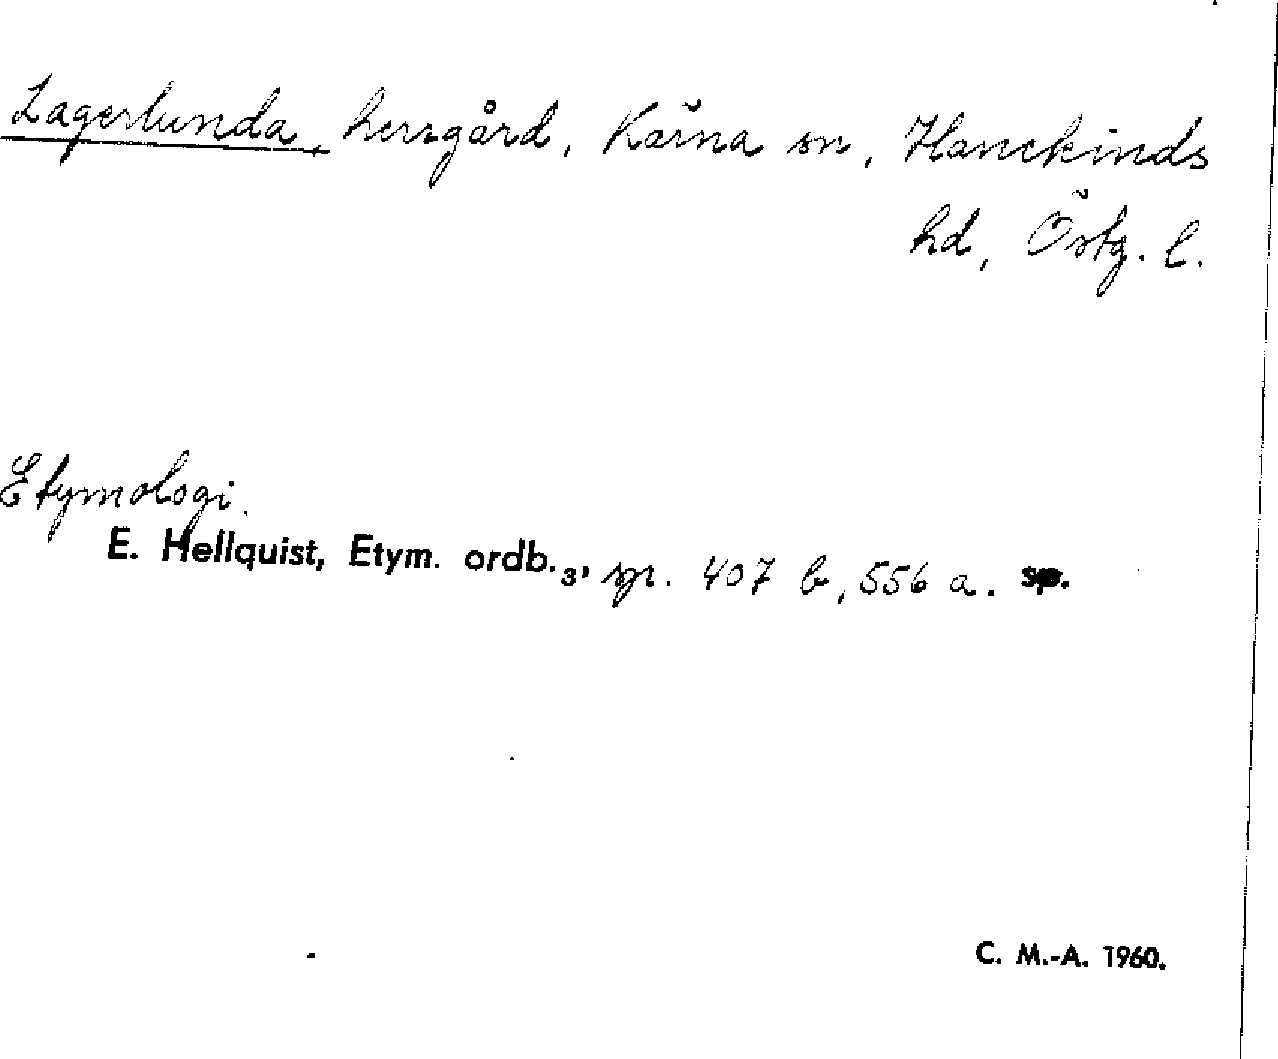 Lagerlunda, herrgård, Kärna sn, Hanekinds
hd, Östg. l.
Etymologi.
E. Hellquist, Etym. ordb.3, sp. 407 b, 556 a. sp.
C. M.-A. 1960.